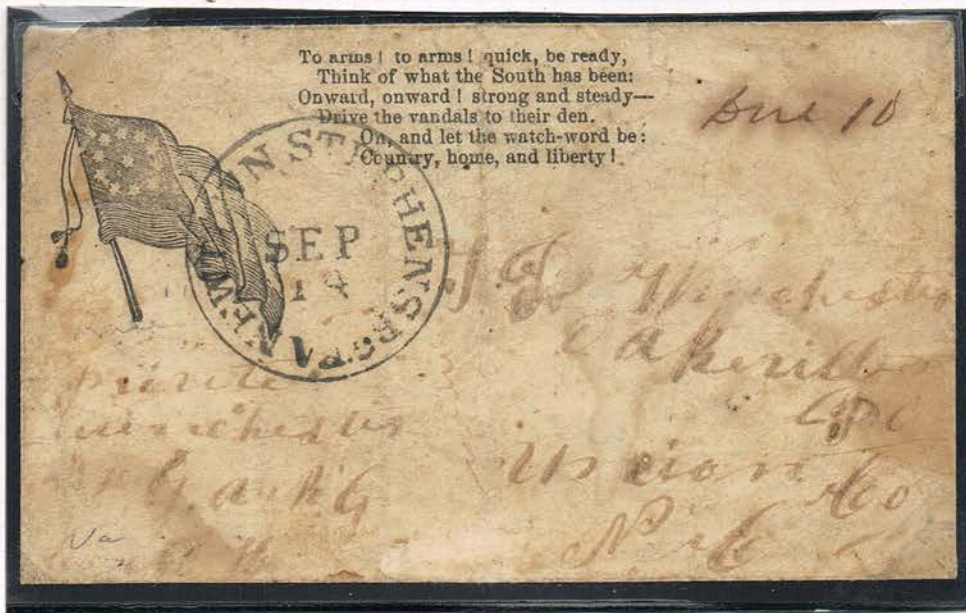 To arms! to arms! quick, be ready,
Think of what the South has been:
Onward, onward! strong and steady—
Drive the vandals to their den.
On, and let the watch-word be:
Country, home, and liberty!
Due 10
NEWTON STEPHENSBG VA
SEP
Winchester
Union Co
N. C
Winchester
Va